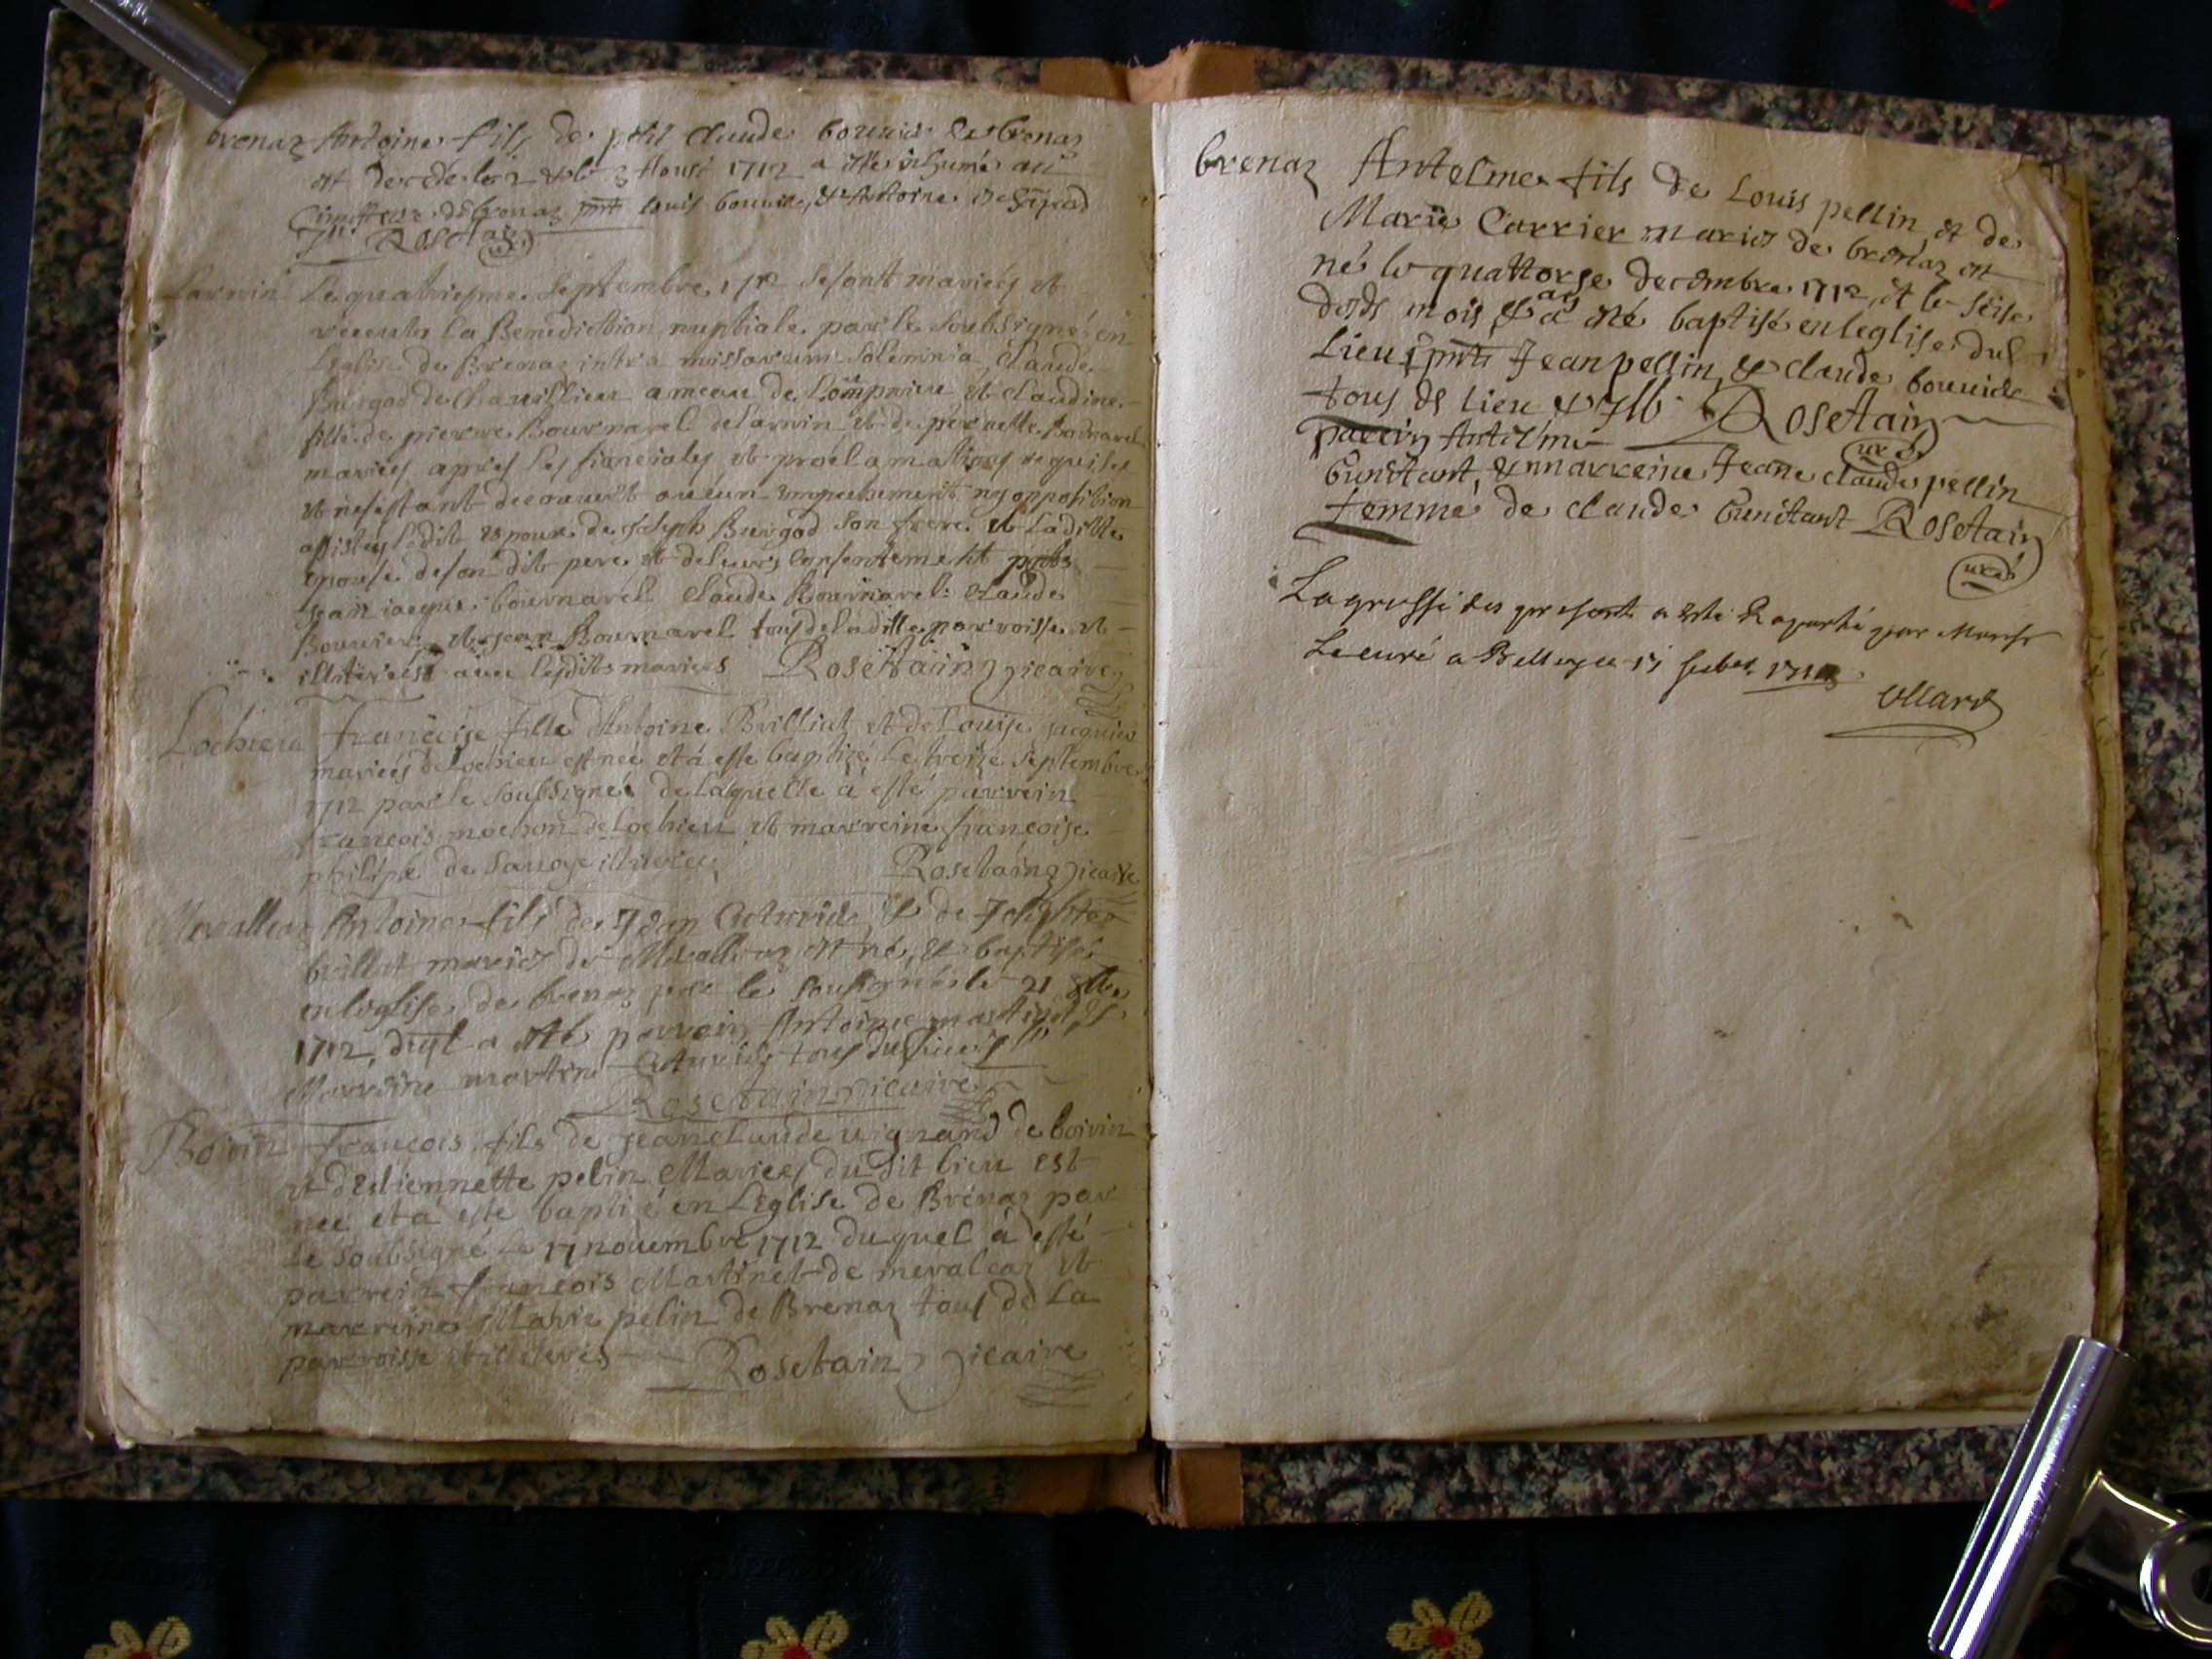 brenaz Antoine fils de petit Claude bouvier de brenaz
et decede le 2 & le 3 Aoust 1712 a ette inhumé au
Cimettiere de brenaz pnt Louis bouvier, & Antoine
Rosetain
Larvin Le quatriesme Septembre 1712 se sont mariés et
receuter la Benediction nuptiale par le soubsigné en
Leglise de Brenaz intra missarum solemnia, Claude
Burgod de Chavillieu ameau de Lompnieu et Claudine
fille de pierre Bournarel de Larvin et de pernette Bournarel
mariés apres les fianciales et proclamations requises
et ne sestant decouvert aucun empechement ny opposition
assistes ledit espoux de Joseph Burgod son frere et la ditte
epouse de son dit pere et de leurs consentement pnts
Jean iacque bournarel Claude Bournarel Claude
Bouvier et Jean Bournarel tous de la ditte parroisse et
illiterés avec lesdits mariers Rosettain vicaire
Lochieu francoise fille dAntoine Brilliat et de Louise Jacquier
mariés de Lochieu est neé et a esté baptizé Le treize Septembre
1712 par le soubsigné de laquelle à esté parrein
francois mochon de Lochieu et marreine francoise
philipe de Savoye illiteres Rosetain vicaire
Mevalleaz Antoine fils de Jean &
brillat maries de Mevalleaz et né, & baptisé
en leglise de brenaz par le sousigné le 21 8bre
1712, duql a etté parrein Antoine martinet &
Marreine martine tous du lieu
Rosetain vicaire
Boivin francois fils de Jean Claude vignand de boivin
et dEstiennette pelin Mariés du dit lieu est
neé et à esté baptisé en LEglise de Brenaz par
le soubsigné Le 17 novembre 1712 duquel à esté
parrein francois Martinet de mevaleaz et
marreine Marie pelin de Brenaz tous de La
parroisse illiterés Rosetain vicaire
brenaz Antelme fils de Louis pellin, et de
Marie Carrier maries de brenaz et
né le quattorse decembre 1712, et le seise
desds mois & an a eté baptisé en leglise dud
Lieu pnts Jean pellin, & claude bouvier
tous ds lieu & Illb Rosetain
parrein Antelme curé
Cunitant, & marreine Jeane claude pellin
femme de claude Cunitant Rosetain
curé
La grosse des present a esté Raporté par Monsr
Le curé a Belley ce 15 febvr. 1713
Ollard